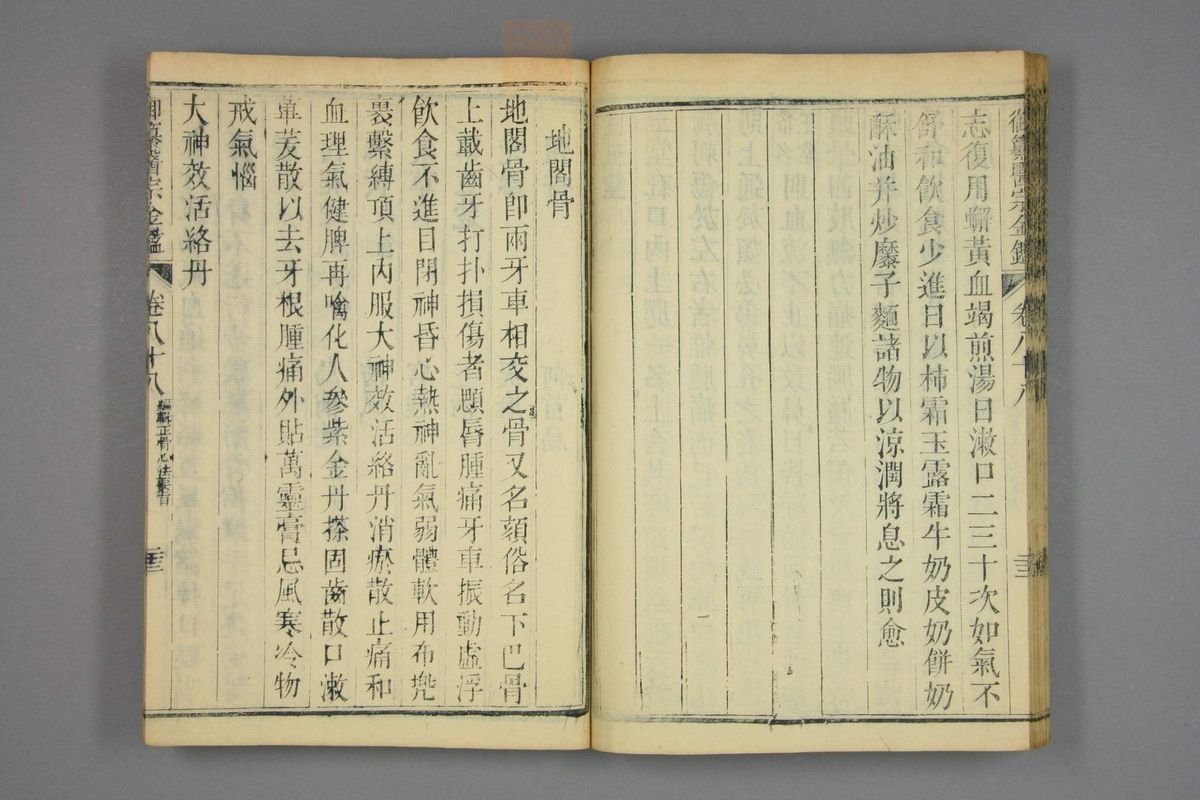 御纂醫宗金鑑 卷八十八
志復用蠏黃血竭煎湯日漱口二三十次如氣不
舒和飲食少進日以柿霜玉露霜牛奶皮奶餅奶
酥油并炒糜子麵諸物以涼潤將息之則愈
地閣骨
地閣骨卽兩牙車相交之骨又名頦俗名下巴骨
上載齒牙打扑損傷者顋唇腫痛牙車振動虛浮
飮食不進目閉神昏心熱神亂氣弱體軟用布兠
裹繫縛頂上內服大神效活絡丹消瘀散止痛和
血理氣健脾再噙化人參紫金丹搽固齒散口漱
蓽茇散以去牙根腫痛外貼萬靈膏忌風寒冷物
戒氣惱
大神效活絡丹
御纂醫宗金鑑 卷八十八 編輯正骨心法要旨 三